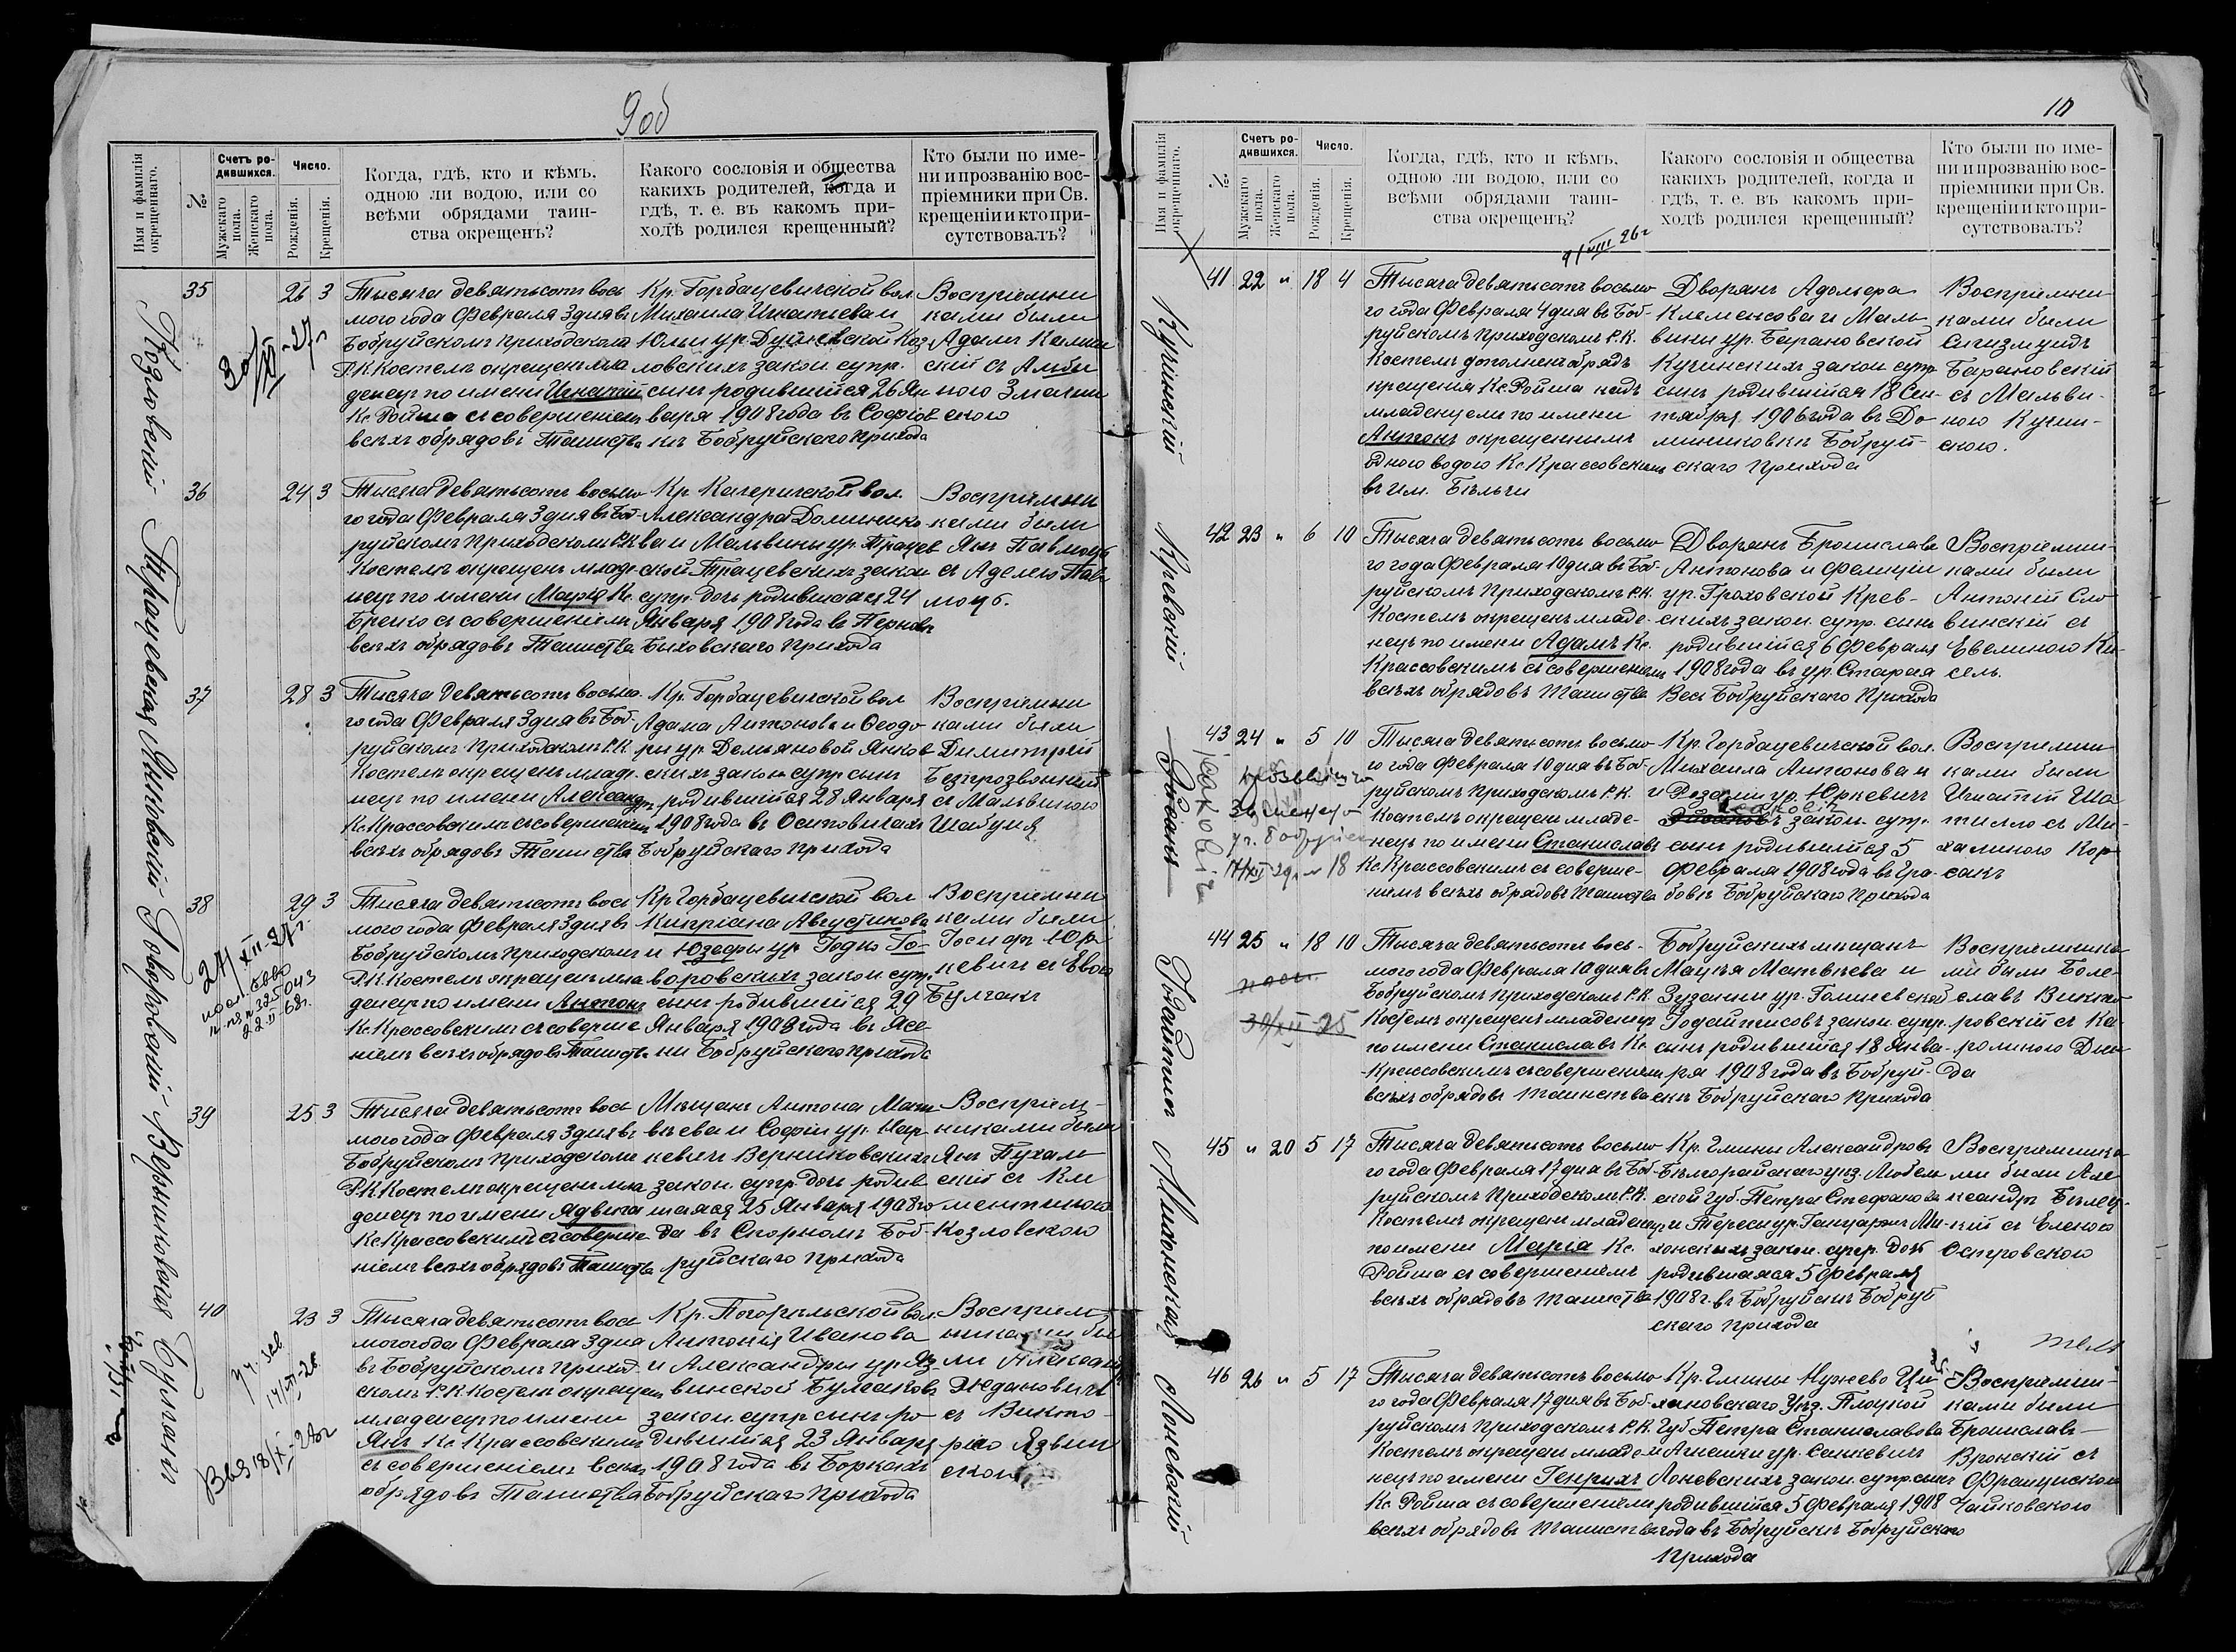 9об
Имя и фамилія окрещеннаго.
№
Счетъ родившихся.
Мужскаго пола.
Женскаго пола.
Число.
Рожденія.
Крещенія.
Когда, гдѣ, кто и кѣмъ,
одною ли водою, или со
всѣми обрядами таин-
ства окрещенъ?
Какого сословія и общества
какихъ родителей, когда и
гдѣ, т. е. въ какомъ при-
ходѣ родился крещенный?
Кто были по име-
ни и прозванію вос-
пріемники при Св.
крещеніи и кто при-
сутствовалъ?
Козловскій
35
26 3
Тысяча девятьсотъ вось
мого года Февраля 3 дня въ
Бобруйскомъ Приходскомъ
Р.К. Костелѣ окрещенъ мла
денецъ по имени Игнатій
Кс. Ройша съ совершеніемъ
всѣхъ обрядовъ Таинства
Кр. Горбацевичской вол
Михаила Игнатьева и
Юліи ур. Коз
ловскихъ закон супр.
сынъ родившійся 26 Ян
варя 1908 года въ
Бобруйскаго Прихода
Воспріемни
ками были
Адамъ
скій съ
30/XI-27г
Трацевская
36
24 3
Тысяча девятьсотъ восьмо
го года Февраля 3 дня въ Боб
руйскомъ Приходскомъ Р.К
Костелѣ окрещенъ младе
нецъ по имени Марія Кс.
съ совершеніемъ
всѣхъ обрядовъ Таинства
Кр. Качеричской вол.
Александра Доминико
ва и Мальвины ур. Трацев
ской Трацевскихъ закон
супр. дочь родившаяся 24
Января 1908 года въ
Быховскаго Прихода
Воспріемни
ками были
Янъ
съ Аделею
Янковскій
37
28 3
Тысяча девятьсотъ восьмо
го года Февраля 3 дня въ Боб-
руйскомъ Приходскомъ Р.К
Костелѣ окрещенъ младе
нецъ по имени Александръ
Кс. Крассовскимъ съ совершеніемъ
всѣхъ обрядовъ Таинства
Кр. Горбацевичской вол
Адама Антонова и Ѳеодо
ры ур. Демьяновой Янков
скихъ закон супр сынъ
родившійся 28 Января
1908 года въ Осиповичахъ
Бобруйскаго Прихода
Воспріемни
ками были
Димитрій
Безпрозванный
съ Мальвиною
Шабуня
Говоровскій
38
29 3
Тысяча девятьсотъ вось
мого года Февраля 3 дня въ
Бобруйскомъ Приходскомъ
Р.К. Костелѣ окрещенъ мла
денецъ по имени Антонъ
Кс. Крассовскимъ съ соверше
ніемъ всѣхъ обрядовъ Таинства
Кр Горбацевичской вол
Кипріана Августинова
и Юзефы ур Годко Го-
воровскихъ закон супр.
сынъ родившійся 29
Января 1908 года въ Ясе-
ни Бобруйскаго Прихода
Воспріемни
ками были
Іосифъ Юр
кевичъ съ Евою
Булгакъ
24/XII-27г.
22.II.68г.
Верниковская
39
25 3
Тысяча девятьсотъ вось
мого года Февраля 3 дня въ
Бобруйскомъ Приходскомъ
Р.К Костелѣ окрещенъ мла
денецъ по имени Ядвига
Кс. Крассовскимъ съ соверше
ніемъ всѣхъ обрядовъ Таинства
Мѣщанъ Антона Мат
вѣева и Софіи ур.
Верниковскихъ
закон. супр дочь родив
шаяся 25 Января 1908 го
да въ Боб-
руйскаго Прихода
Воспріем-
никами были
Янъ
скій съ Кле
ментиною
Козловскою
Булгакъ
40
23 3
Тысяча девятьсотъ вось
мого года Февраля 3 дня
въ Бобруйскомъ Приход-
скомъ Р.К Костелѣ окрещенъ
младенецъ по имени
Янъ Кс. Крассовскимъ
съ совершеніемъ всѣхъ
обрядовъ Таинства
Кр. Погорѣльской вол.
Антонія Иванова
и Александры ур Яз
винской Булгаковъ
закон. супр сынъ ро
дившійся 23 Января
1908 года въ Боркахъ
Бобруйскаго Прихода
Воспріем
никами бы
ли Александръ
Ждановичъ
съ Викто-
ріею Язвин
скою
10
Имя и фамилія окрещеннаго.
№
Счетъ родившихся.
Мужскаго пола.
Женскаго пола.
Число.
Рожденія.
Крещенія.
Когда, гдѣ, кто и кѣмъ,
одною ли водою, или со
всѣми обрядами таин-
ства окрещенъ?
Какого сословія и общества
какихъ родителей, когда и
гдѣ, т. е. въ какомъ при-
ходѣ родился крещенный?
Кто были по име-
ни и прозванію вос-
пріемники при Св.
крещеніи и кто при-
сутствовалъ?
Кучинскій
41 22 " 18 4
Тысяча девятьсотъ восьмо
го года Февраля 4 дня въ Боб-
руйскомъ Приходскомъ Р.К.
Костелѣ дополненъ обрядъ
крещенія Кс. Ройша надъ
младенцемъ по имени
Антонъ окрещеннымъ
одною водою Кс Крассовскимъ
въ им. Бѣльчи
Дворянъ Адольфа
Клеменсова и Маль
вины ур. Барановской
Кучинскихъ закон супр
сынъ родившійся 18 Сен-
тября 1906 года въ До
миниковкѣ Бобруй-
скаго Прихода
Воспріемни
ками были
Сигизмундъ
Барановскій
съ Мальви-
ною Кучин-
скою.
Кревскій
42 23 " 6 10
Тысяча девятьсотъ восьмо
го года Февраля 10 дня въ Боб-
руйскомъ Приходскомъ Р.К.
Костелѣ окрещенъ младе-
нецъ по имени Адамъ Кс.
Крассовскимъ съ совершеніемъ
всѣхъ обрядовъ Таинства
Дворянъ Бронислава
Антонова и Фелиціи
ур. Гроховской Крев-
скихъ закон. супр. сынъ
родившійся 6 Февраля
1908 года въ ур. Старая
Весь Бобруйскаго Прихода
Воспріемни-
ками были
Антоній Сло
винскій съ
Евелиною Ки-
сель.
43 24 " 5 10
Тысяча девятьсотъ восьмо
го года Февраля 10 дня въ Боб-
руйскомъ Приходскомъ Р.К.
Костелѣ окрещенъ младе-
нецъ по имени Станиславъ
Кс. Крассовскимъ съ соверше-
ніемъ всѣхъ обрядовъ Таинства
Кр. Горбацевичской вол.
Михаила Антонова и
и Розаліи ур. Юркевичъ
закон. супр.
сынъ родившійся 5
Февраля 1908 года въ Гра-
бовѣ Бобруйскаго Прихода
Воспріемни
ками были
Игнатій Ша
тилло съ Ми-
халиною Кор-
сакъ
Годайтисъ
44 25 " 18 10
Тысяча девятьсотъ вось-
мого года Февраля 10 дня въ
Бобруйскомъ Приходскомъ Р.К.
Костелѣ окрещенъ младенецъ
по имени Станиславъ Кс.
Крассовскимъ съ совершеніемъ
всѣхъ обрядовъ Таинства
Бобруйскихъ мѣщанъ
Мацѣя Матвѣева и
Зузанны ур.
Годайтисовъ закон. супр.
сынъ родившійся 18 Янва-
ря 1908 года въ Бобруй-
скѣ Бобруйскаго Прихода
Воспріемника
ми были Боле-
славъ Викто
ровскій съ Ка-
ролиною
да
30/XII-25
Михонская
45 " 20 5 17
Тысяча девятьсотъ восьмо
го года Февраля 17 дня въ Боб-
руйскомъ Приходскомъ Р.К.
Костелѣ окрещенъ младенецъ
по имени Марія Кс.
Ройша съ совершеніемъ
всѣхъ обрядовъ Таинства
Кр. Гмины Александровъ
Бѣлгорайскаго уѣз. Люблин
ской губ. Петра Стефанова
и Тересы ур. Ганцаржъ Ми-
хонскихъ закон. супр. дочь
родившаяся 5 Февраля
1908 г. въ Бобруйскѣ Бобруй
скаго Прихода
Воспріемника
ми были Але
ксандръ
кій съ Еленою
Островскою
Лоневскій
46 26 " 5 17
Тысяча девятьсотъ восьмо
го года Февраля 17 дня въ Боб-
руйскомъ Приходскомъ Р.К.
Костелѣ окрещенъ младе-
нецъ по имени Генрихъ
Кс. Ройша съ совершеніемъ
всѣхъ обрядовъ Таинства
Кр. Гмины Нужево Цѣ
хановскаго Уѣз. Плоцкой
Губ Петра Станиславова
и Агнешки ур. Санкевичъ
Лоневскихъ закон. супр. сынъ
родившійся 5 Февраля 1908
года въ Бобруйскѣ Бобруйскаго
Прихода
Воспріемни-
ками были
Брониславъ
Вронскій съ
Францискою
Чайковскою